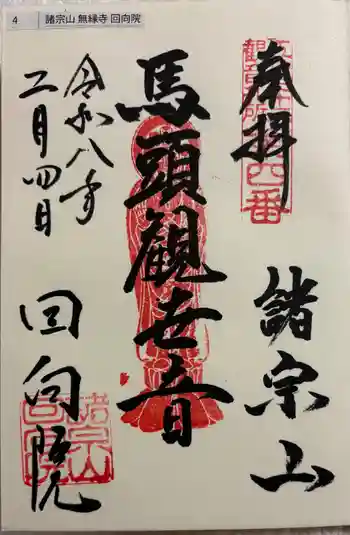 4 諸宗山 無縁寺 回向院
奉拝
諸宗山
馬頭観世音
令和八年
二月四日
回向院
四番
諸宗山
回向院